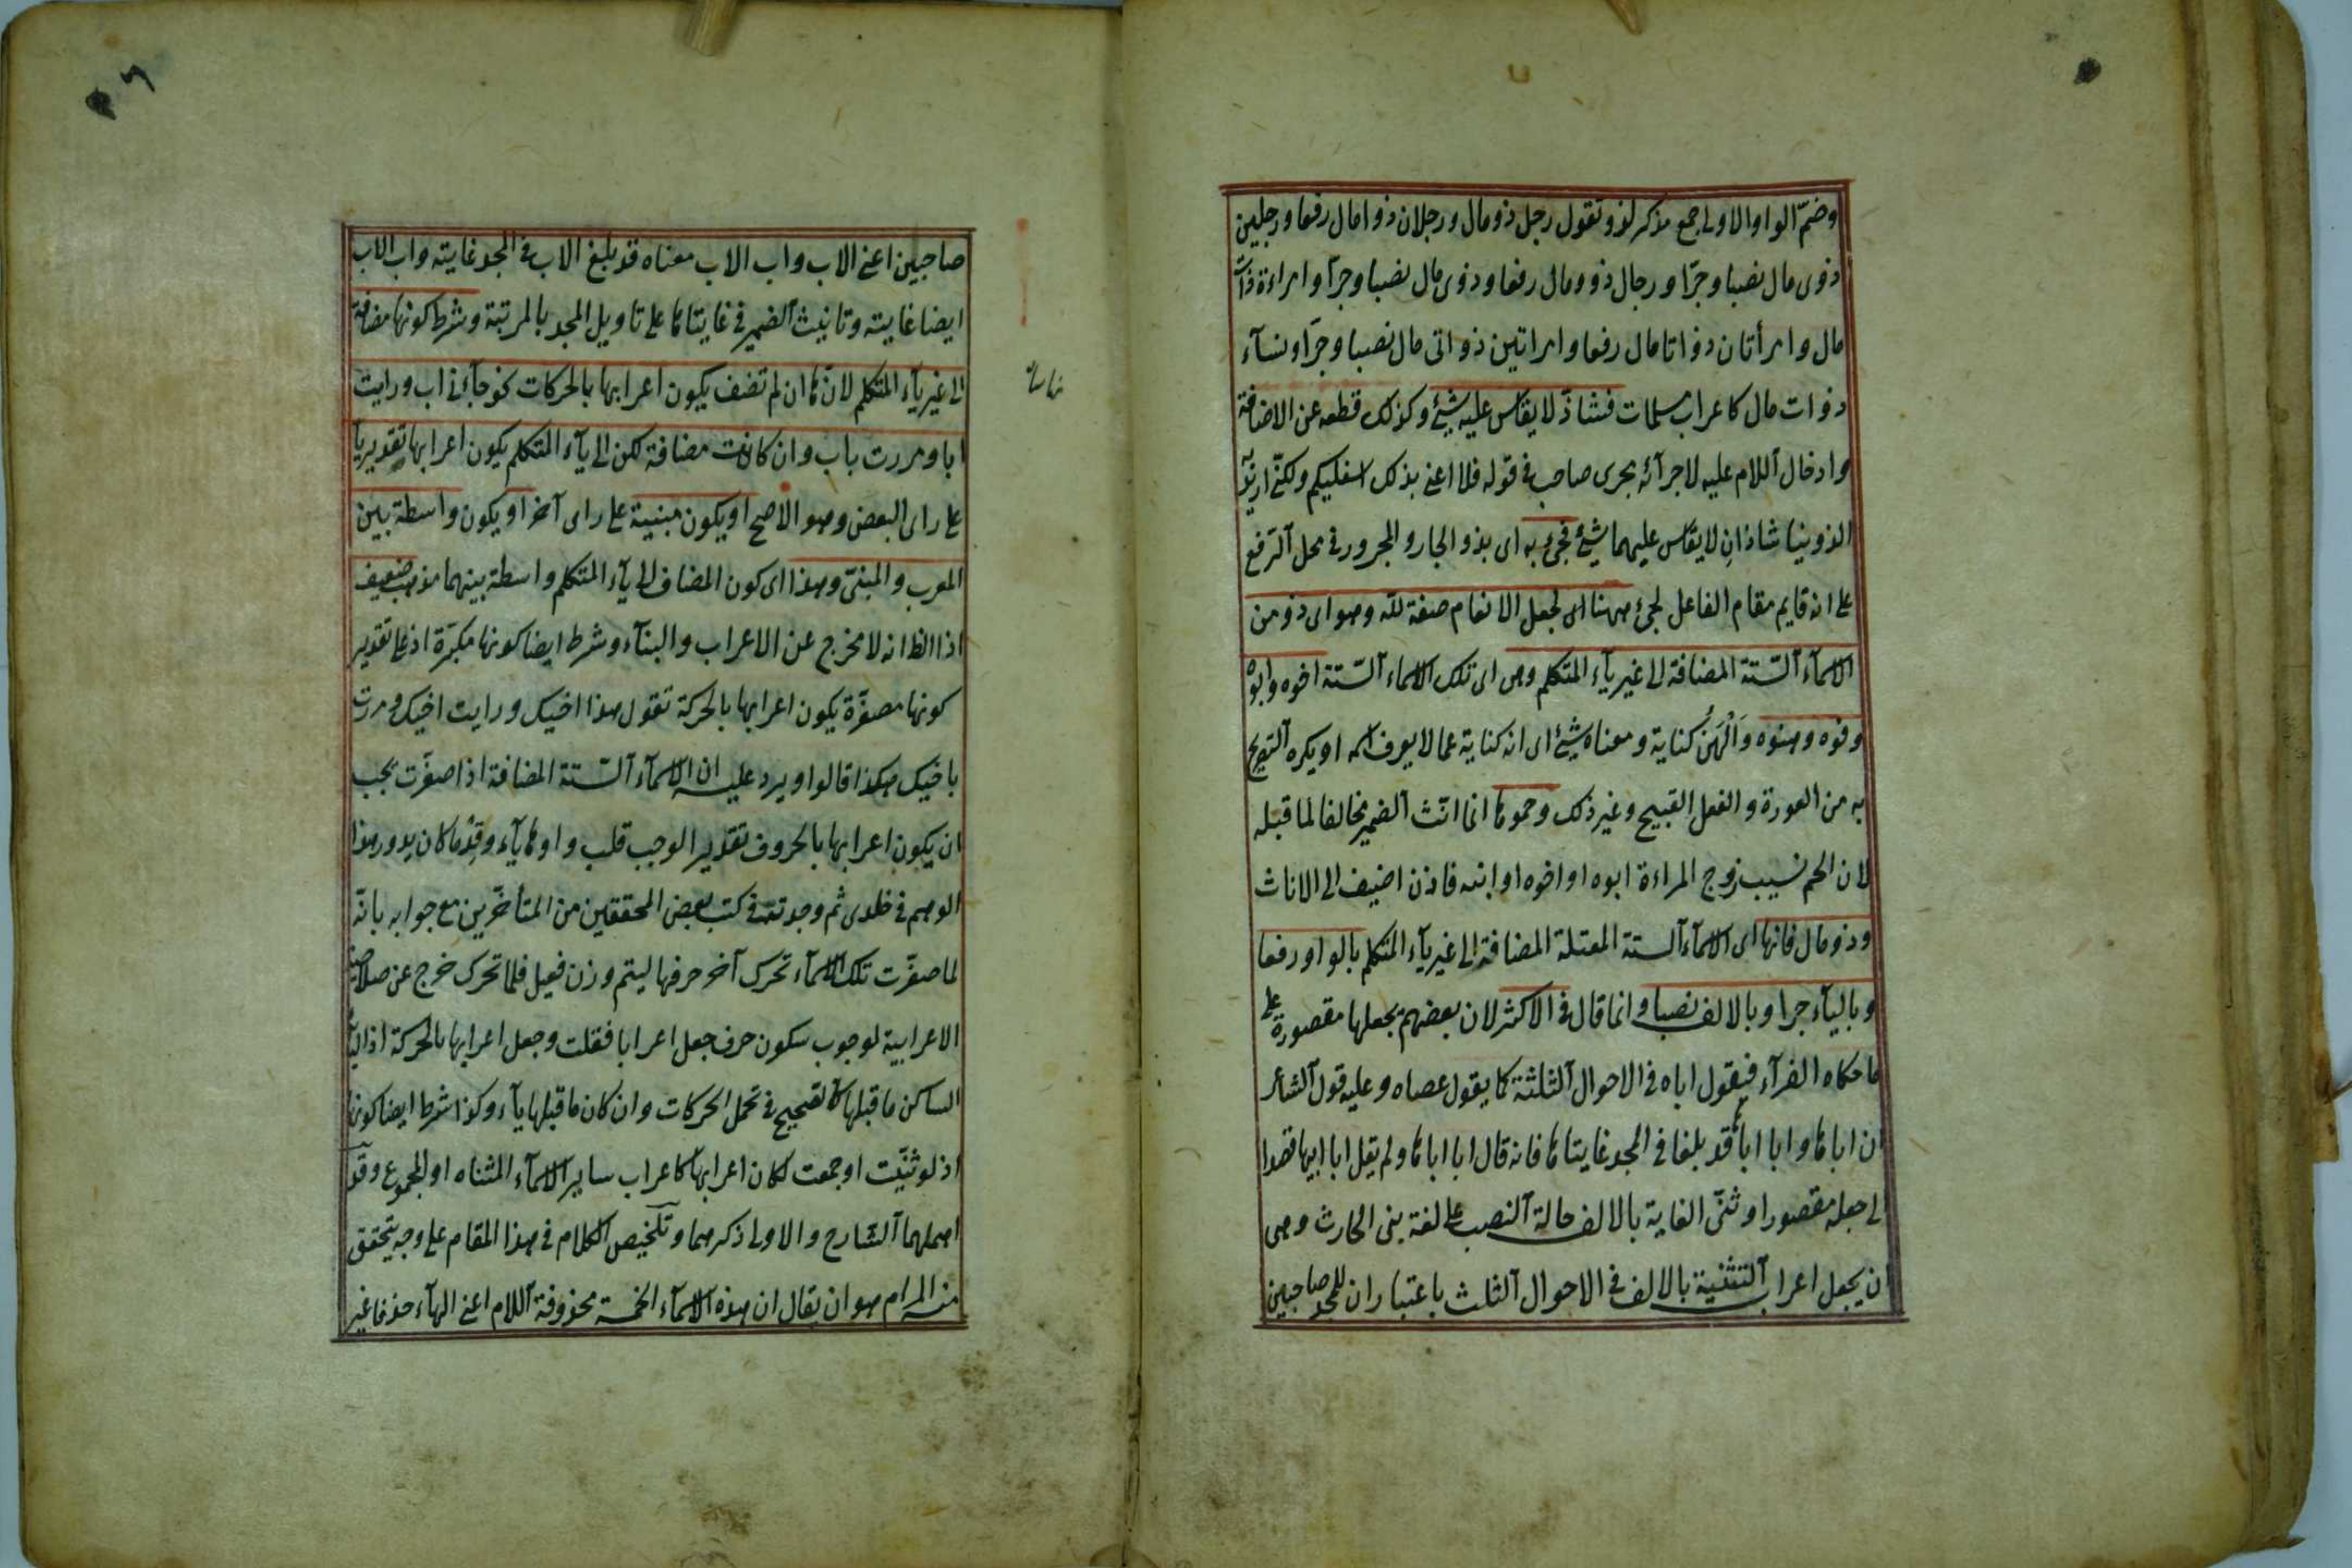 وضمّ الواو الاولى جمع مذكر لذو وتقول رجل ذو مال ورجلان ذوا مال رفعا ورجلين
ذوى مال نصبا وجرّا ورجال ذوو مال رفعا وذوى مال نصبا وجرّا وامراءة ذات
مال وامرأتان ذواتا مال رفعا وامراتين ذواتى مال نصبا وجرّا ونسآء
ذوات مال كاعراب مسلمات فشاذّ لا يقاس عليه شئ وكذلك قطعه عن الاضافة
وادخال آللام عليه لاجرآئه مجرى صاحب فى قوله فلا اعنى بذلك اسفليكم ولكنّى اريد به
الذوينا شاذان لا يقاس عليهما شئ فجئ به اى بذو الجار والمجرور فى محل آلرفع
على انه قايم مقام الفاعل لجئ ههنا اى لجعل الانعام صفة لله وهو اى ذو من
الاسمآء آلستة المضافة الى غير يآء المتكلم وهى اى تلك الاسماء آلستة اخوه وابوه
وفوه وهنوه وَالْهَنُ كناية ومعناه شئ اى انه كناية عما لا يعرف اسمه او يكره آلتصريح
به من العورة والفعل القبيح وغير ذلك وحموها انما انّث آلضمير مخالفا لما قبله
لان الحم نسيب زوج المراءة ابوه او اخوه او ابنه فاذن اضيف الى الاناث
وذو مال فانها اى الاسمآء آلستة المعتلة المضافة الى غير يآء المتكلم بالواو رفعا
وباليآء جرا وبالالف نصبا وانما قال فى الاكثر لان بعضهم يجعلها مقصورة على
ما حكاه الفرآء فيقول اباه فى الاحوال آلثلثة كما يقول عصاه وعليه قول آلشاعر
ان اباها وابا اباها قد بلغا فى المجد غايتاها فانه قال ابا اباها ولم يقل ابا ابيها قصدا
الى جعله مقصورا وثنّى الغاية بالالف حالة آلنصب على لغة بنى الحارث وهى
ان يجعل اعراب آلتثنية بالالف فى الاحوال آلثلث باعتبار ان للمجد صاحبين
صاحبين اعنى الاب واب الاب معناه قد بلغ الاب فى المجد غايته واب الاب
ايضا غايته وتانيث آلضمير فى غايتاها على تاويل المجد بالمرتبة وشرط كونها مضافة
الى غير يآء المتكلم لانّها ان لم تضف يكون اعرابها بالحركات نحو جآءنى اب ورايت
ابا ومررت باب وان كانت مضافة لكن الى يآء المتكلم يكون اعرابها تقديريا
على راى البعض وهو الاصح او يكون مبنية على راى آخر او يكون واسطة بين
المعرب والمبنىّ وهذا اى كون المضاف الى يآء المتكلم واسطة بينهما مذهب ضعيف
اذ الظ انه لا مخرج عن الاعراب والبنآء وشرط ايضا كونها مكبّرة اذ على تقدير
كونها مصغّرة يكون اعرابها بالحركة تقول هذا اخيك ورايت اخيك ومررت
باخيك هكذا قالوا ويرد عليه ان الاسمآء آلستة المضافة اذا صغّرت يجب
ان يكون اعرابها بالحروف تقدير الوجب قلب واوها يآء وقدْما كان يدور هذا
الوهم فى خلدى ثم وجدته فى كتب بعض المحققين من المتأخّرين مع جوابه بانّه
لما صغّرت تلك الاسمآء تحرك آخر حرفها ليتم وزن فعيل فلما تحرك خرج عن صلاحية
الاعرابية لوجوب سكون حرف جعل اعرابا فقلت وجعل اعرابها بالحركة اذ اليآء
الساكن ما قبلها كالصحيح فى تحمل الحركات وان كان ما قبلها يآء وكذا شرط ايضا كونها
اذ لو ثنّيت او جمعت لكان اعرابها كاعراب ساير الاسمآء المثناه او المجموع وقد
اهملهما آلشارح والاولى ذكرهما وتلخيص الكلام فى هذا المقام على وجه يتحقق
منه المرام هو ان يقال ان هذه الاسمآء الخمسة محذوفة آللام اعنى الهآء حذفا غير